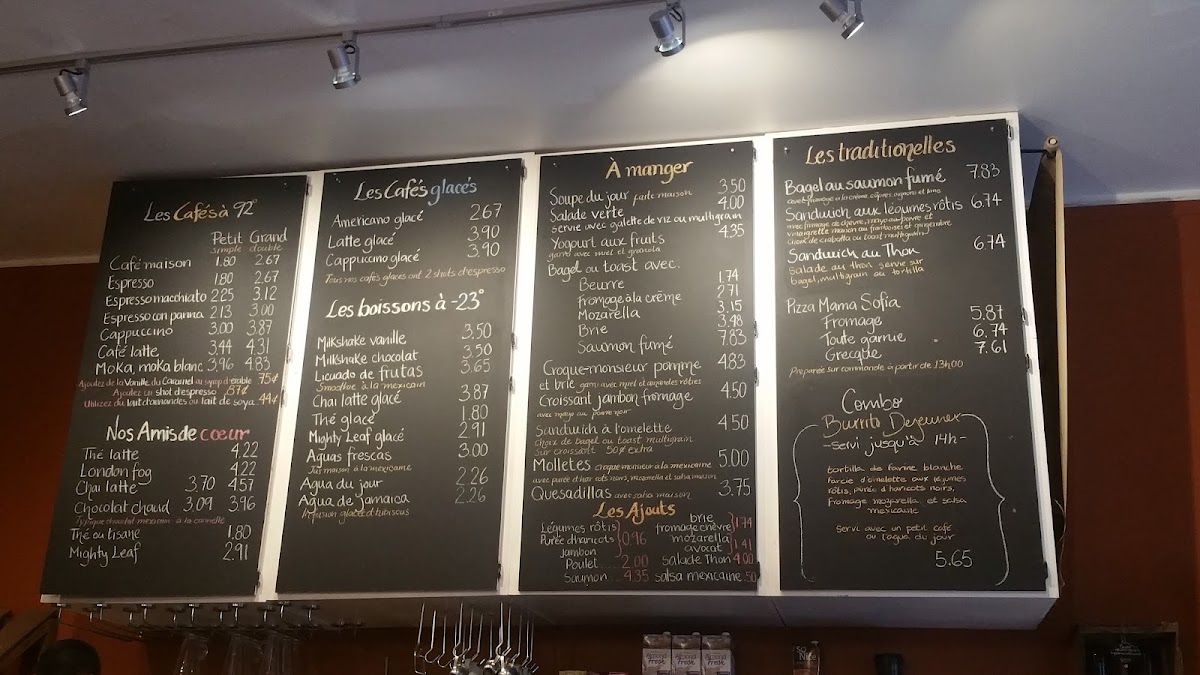 Les Cafés à 92°
Petit Grand
simple double
Café maison 1.80 2.67
Espresso 1.80 2.67
Espresso macchiato 2.25 3.12
Espresso con panna 2.13 3.00
Cappuccino 3.00 3.87
Café latte 3.44 4.31
Moka, moka blanc 3.96 4.83
Ajoutez de la Vanille du Caramel ou sirop d'érable 75¢
Ajoutez un shot d'espresso .87¢
Utilisez du lait d'amandes ou lait de soya 44¢
Nos Amis de coeur
Thé latte 4.22
London fog 4.22
Chai latte 3.70 4.57
Chocolat chaud 3.09 3.96
Typique chocolat mexicain à la cannelle
Thé ou tisane 1.80
Mighty Leaf 2.91
Les Cafés glacés
Americano glacé 2.67
Latte glacé 3.90
Cappuccino glacé 3.90
Tous nos cafés glacés ont 2 shots d'espresso
Les boissons à -23°
Milkshake vanille 3.50
Milkshake chocolat 3.50
Licuado de frutas 3.65
Smoothie à la mexicain
Chai latte glacé 3.87
Thé glacé 1.80
Mighty Leaf glacé 2.91
Aguas frescas 3.00
Jus maison à la mexicaine
Agua du jour 2.26
Agua de jamaica 2.26
Infusion glacée d'hibiscus
À manger
Soupe du jour faite maison 3.50
Salade verte 4.00
servie avec galette de riz ou multigrain
Yogourt aux fruits 4.35
garni avec miel et granola
Bagel ou toast avec:
Beurre 1.74
Fromage à la crème 2.71
Mozarella 3.15
Brie 3.48
Saumon fumé 7.83
Croque-monsieur pomme 4.83
et brie garni avec miel et amandes rôties
Croissant jambon fromage 4.50
avec mayo ou poivre noir
Sandwich à l'omelette 4.50
Choix de bagel ou toast multigrain
Sur croissant 50¢ extra
Molletes croque-monsieur à la mexicaine 5.00
avec purée d'haricots noirs, mozarella et salsa maison
Quesadillas avec salsa maison 3.75
Les Ajouts
Légumes rôtis
Purée d'haricots 0.96
jambon
Poulet ..... 2.00
Saumon ... 4.35
brie
fromage chèvre 1.74
mozarella
avocat 1.41
salade Thon 4.00
salsa mexicaine .50
Les traditionelles
Bagel au saumon fumé 7.83
avec fromage à la crème, câpres, oignons et lime
Sandwich aux légumes rôtis 6.74
avec fromage de chèvre, mayo au poivre et
vinaigrette maison au framboise et gingembre
Choix de ciabatta ou toast multigrain
Sandwich au Thon 6.74
Salade au thon servie sur
bagel, multigrain ou tortilla
Pizza Mama Sofia
Fromage 5.87
Toute garnie 6.74
Grecque 7.61
Préparée sur commande à partir de 13h00
Combo
Burrito Dejeuner
-servi jusqu'à 14h-
tortilla de farine blanche
farcie d'omelette aux légumes
rôtis, purée d'haricots noirs,
fromage mozarella et salsa
mexicaine
Servi avec un petit café
ou l'agua du jour
5.65
Almond
Fresh
Almond
Fresh
Almond
Fresh
SO
Nice